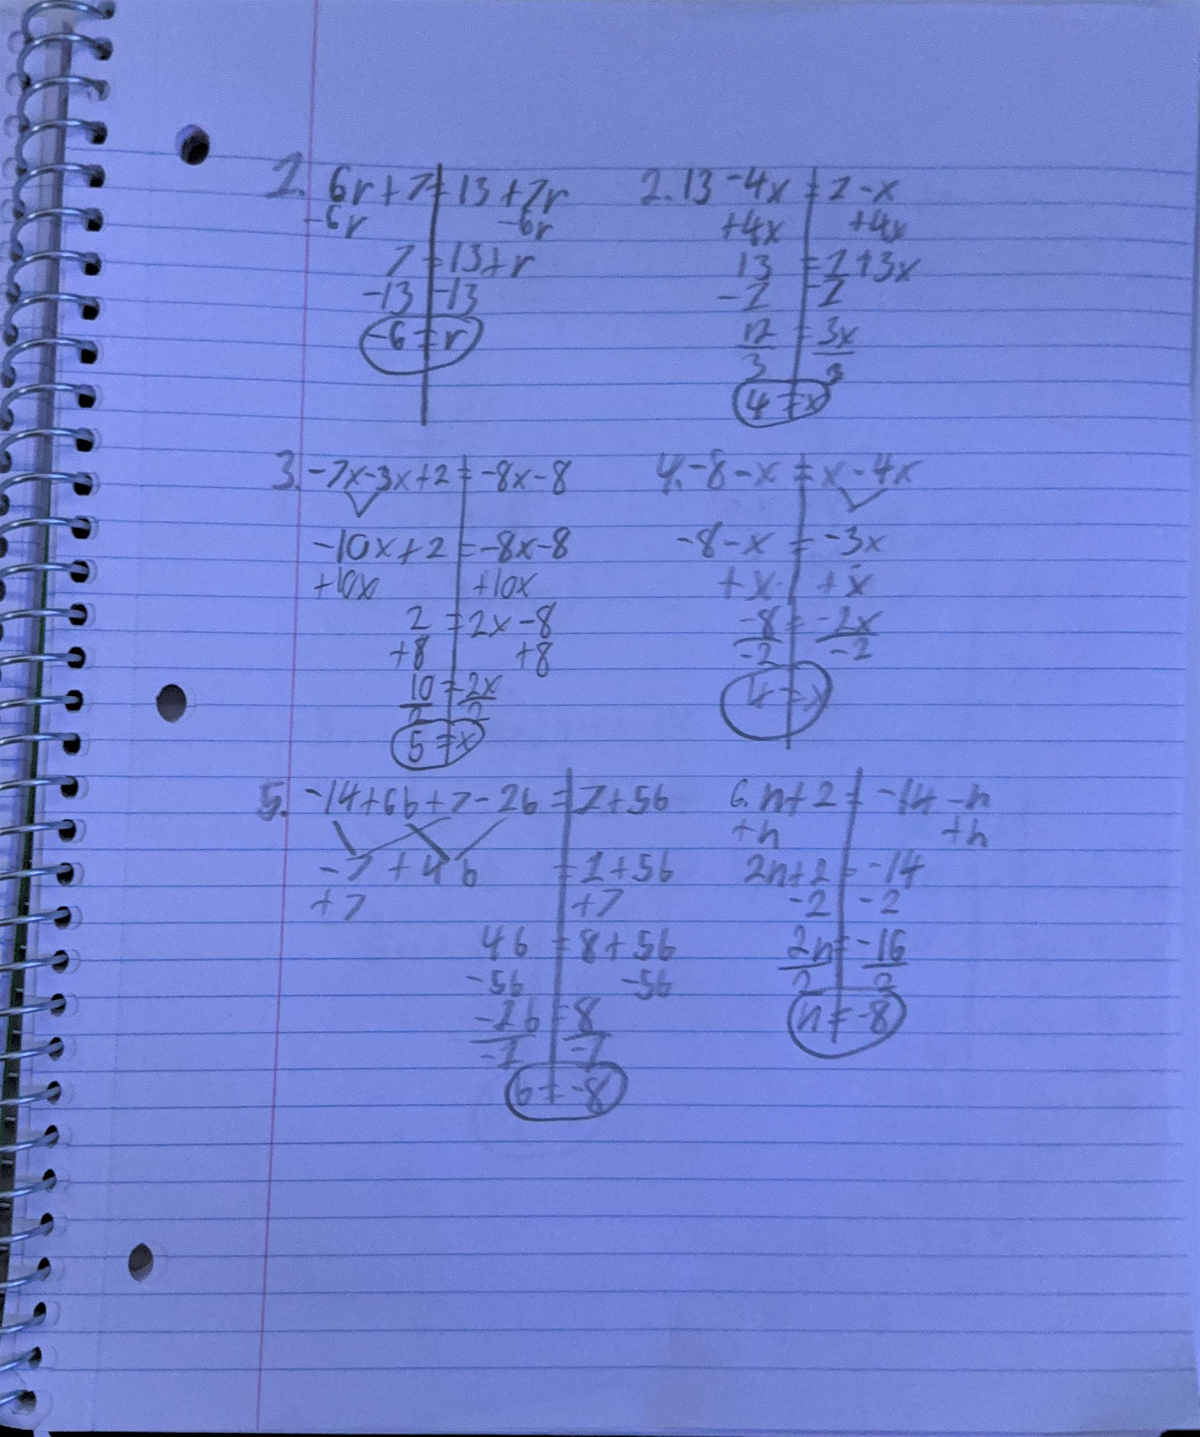 1. 6r + 7 = 13 + 7r
-6r -6r
7 = 13 + r
-13 -13
-6 = r
2. 13 - 4x = 1 - x
+4x +4x
13 = 1 + 3x
-1 -1
12 = 3x
3 3
4 = x
3. -7x - 3x + 2 = -8x - 8
-10x + 2 = -8x - 8
+10x +10x
2 = 2x - 8
+8 +8
10 = 2x
2 2
5 = x
4. -8 - x = x - 4x
-8 - x = -3x
+x +x
-8 = -2x
-2 -2
4 = x
5. -14 + 6b + 7 - 2b = 1 + 5b
-7 + 4b = 1 + 5b
+7 +7
4b = 8 + 5b
-5b -5b
-1b = 8
-1 -1
b = -8
6. n + 2 = -14 - n
+n +n
2n + 2 = -14
-2 -2
2n = -16
2 2
n = -8